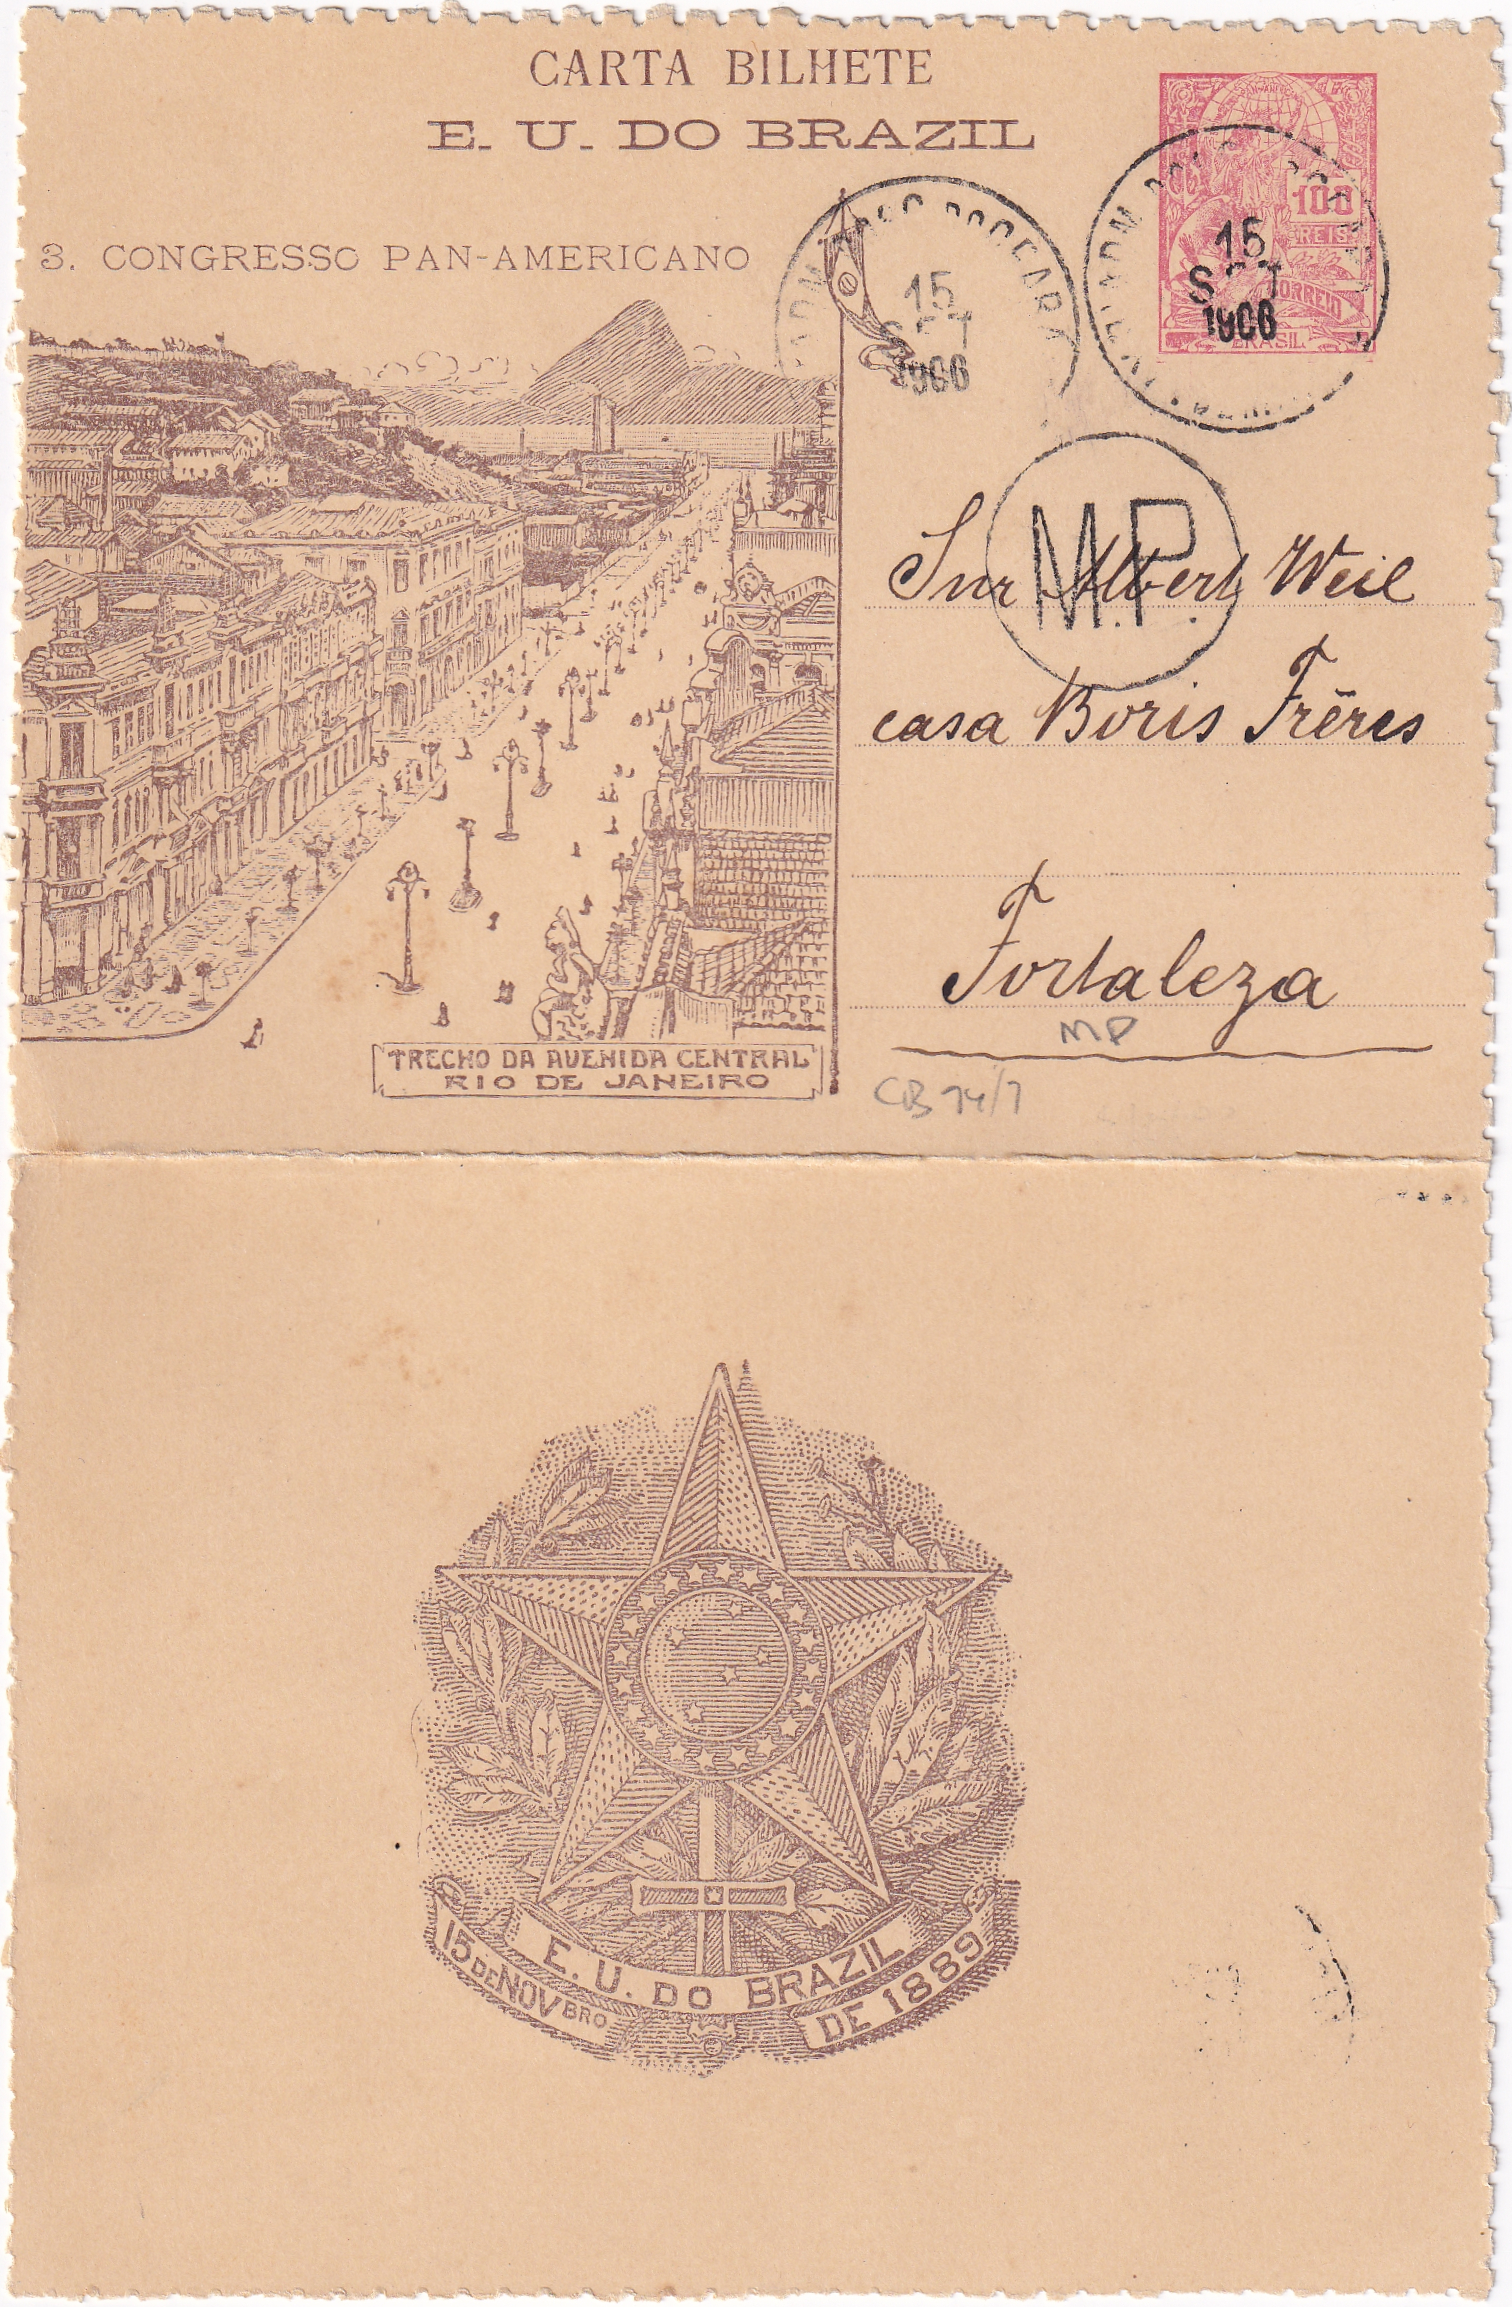 CARTA BILHETE
E. U. DO BRAZIL
3. CONGRESSO PAN-AMERICANO
100
REIS
CORREIO
BRASIL
15
SET
1906
15
SET
1906
M.P.
Snr Albert Weil
casa Boris Frēres
Fortaleza
MP
CB 74/7
TRECHO DA AVENIDA CENTRAL
RIO DE JANEIRO
E. U. DO BRAZIL
15 DE NOVBRO DE 1889